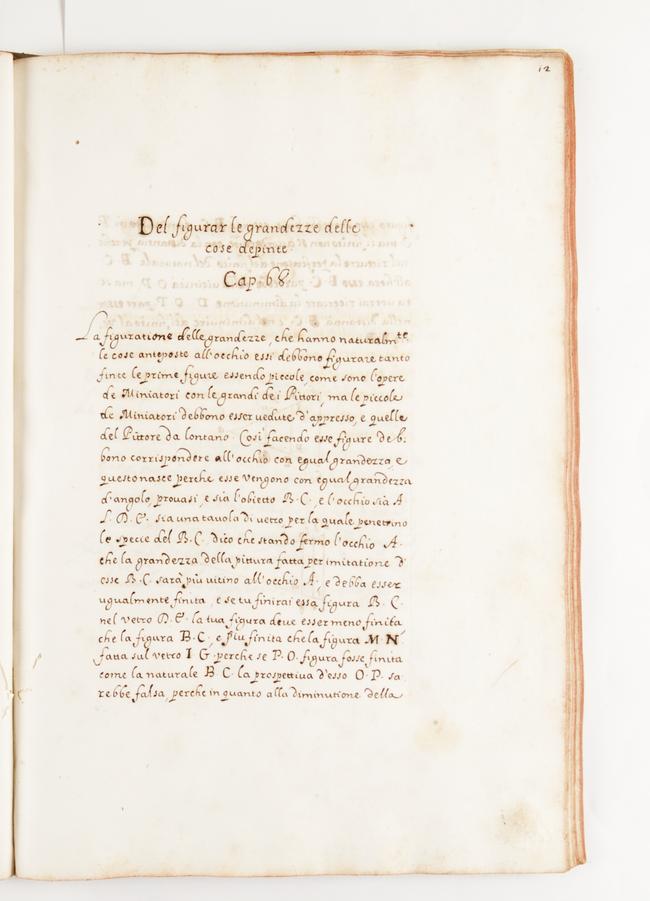 12
Del figurar le grandezze delle
cose depinte
Cap. 68.
La figuratione delle grandezze, che hanno naturalm.te
le cose anteposte all'occhio essi debbono figurare tanto
finte le prime figure essendo piccole, come sono l'opere
de Miniatori con le grandi dei Pittori, ma le piccole
de Miniatori debbono esser vedute d'appresso, e quelle
del Pittore da lontano. Così facendo esse figure deb:
bono corrispondere all'occhio con egual grandezza, e
questo nasce perche esse vengono con egual grandezza
d'angolo, provasi, e sia l'obietto B. C., e l'occhio sia A
L. D. E. sia una tavola di vetro per la quale penetrino
le specie del B. C. dico che stando fermo l'occhio A.
che la grandezza della pittura fatta per imitatione d'
esse B. C. sarà più vitino all'occhio A, e debba esser
ugualmente finita, e se tu finirai essa figura B. C.
nel vetro D. E. la tua figura deve esser meno finita
che la figura B. C., e più finita che la figura M N
fatta sul vetro I G. perche se P. O. figura fosse finita
come la naturale B. C. la prospettiva d'esso O. P. sa
rebbe falsa, perche in quanto alla diminutione della